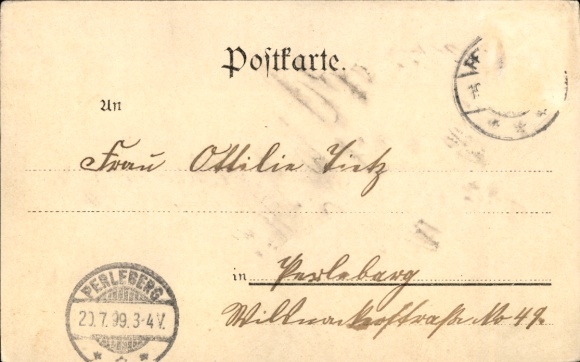 Postkarte.
An
Frau Ottilie Tietz
in Perleberg
Wittenbergerstraße No 49.
PERLEBERG
20.7.99.3-4V.